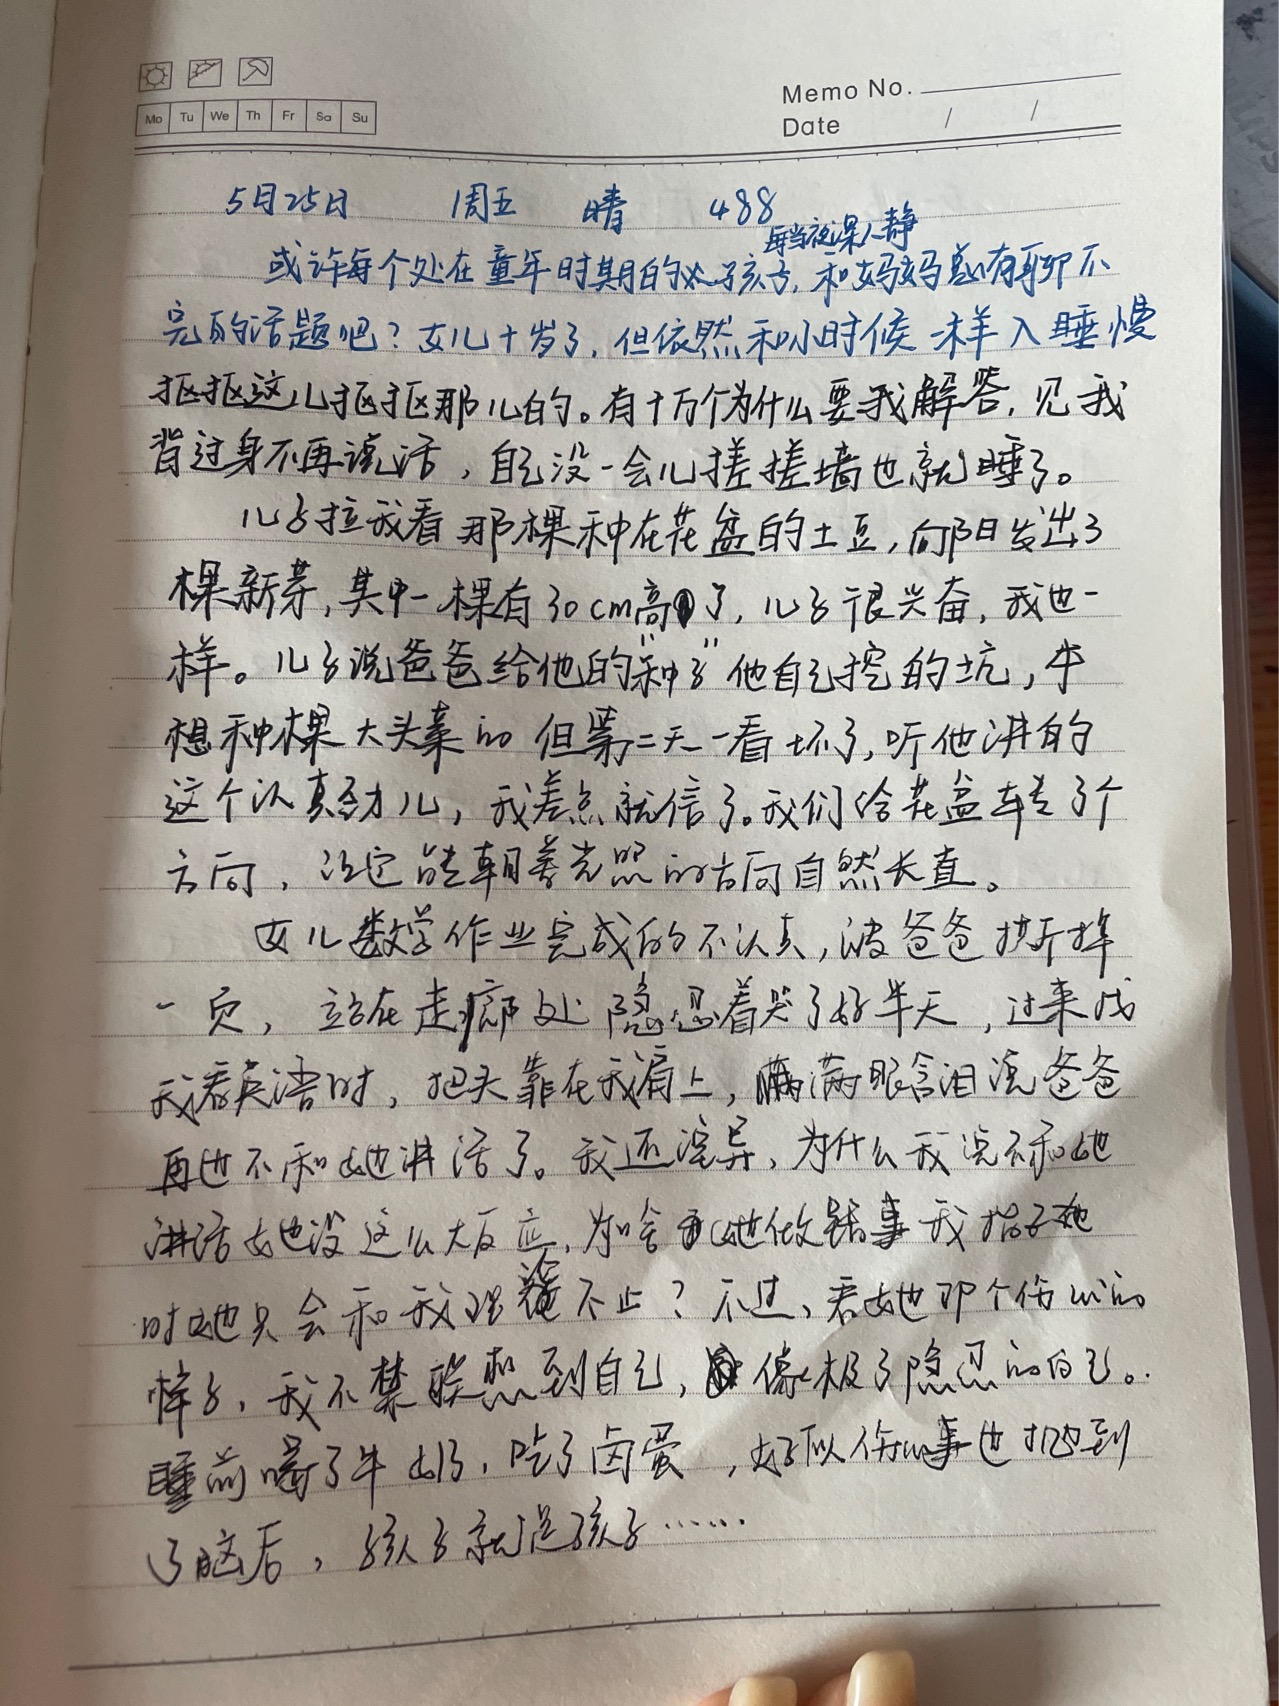 Memo No.
Mo Tu We Th Fr Sa Su
Date / /
5月25日 周五 晴 488
每当夜深人静
或许每个处在童年时期的孩子,和妈妈总有聊不
完的话题吧?女儿十岁了,但依然和小时候一样入睡慢
抠抠这儿抠抠那儿的。有十万个为什么要我解答,见我
背过身不再说话,自己没一会儿搓搓墙也就睡了。
儿子拉我看那棵种在花盆的土豆,向阳发出3
棵新芽,其中一棵有30cm高了,儿子很兴奋,我也一
样。儿子说爸爸给他的"种子"他自己挖的坑,本
想种棵大头菜的但第二天一看坏了,听他讲的
这个认真劲儿,我差点就信了。我们给花盆转了个
方向,没定能朝着光照的方向自然长直。
女儿数学作业完成的不认真,被爸爸撕掉
一页,站在走廊处隐忍着哭了好半天,过来找
我看英语时,把头靠在我肩上,满眼含泪说爸爸
再也不和她讲话了。我还诧异,为什么我说不和她
讲话她没这么大反应,为啥她做错事我指正她
时她只会和我理论不止?不过,看她那个伤心的
样子,我不禁联想到自己,像极了隐忍的自己。
睡前喝了牛奶,吃了卤蛋,好似伤心事也抛到
了脑后,孩子就是孩子……